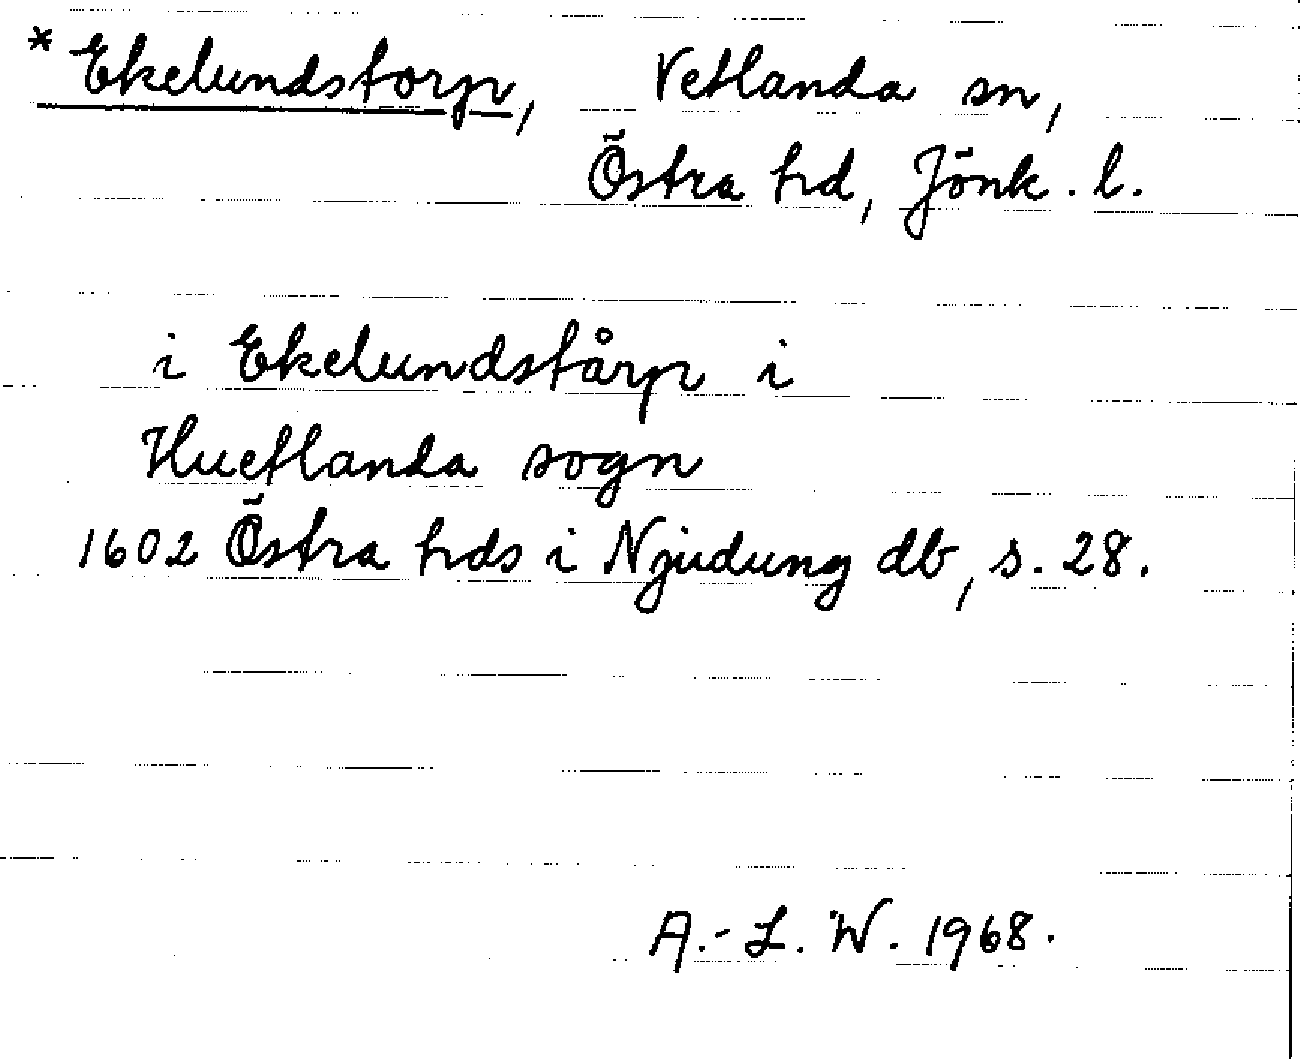 * Ekelundstorp, Vetlanda sn,
Östra hd, Jönk. l.
i Ekelundstårp i
Huetlanda sogn
1602 Östra hds i Njudung db, s. 28.
A.-L. W. 1968.